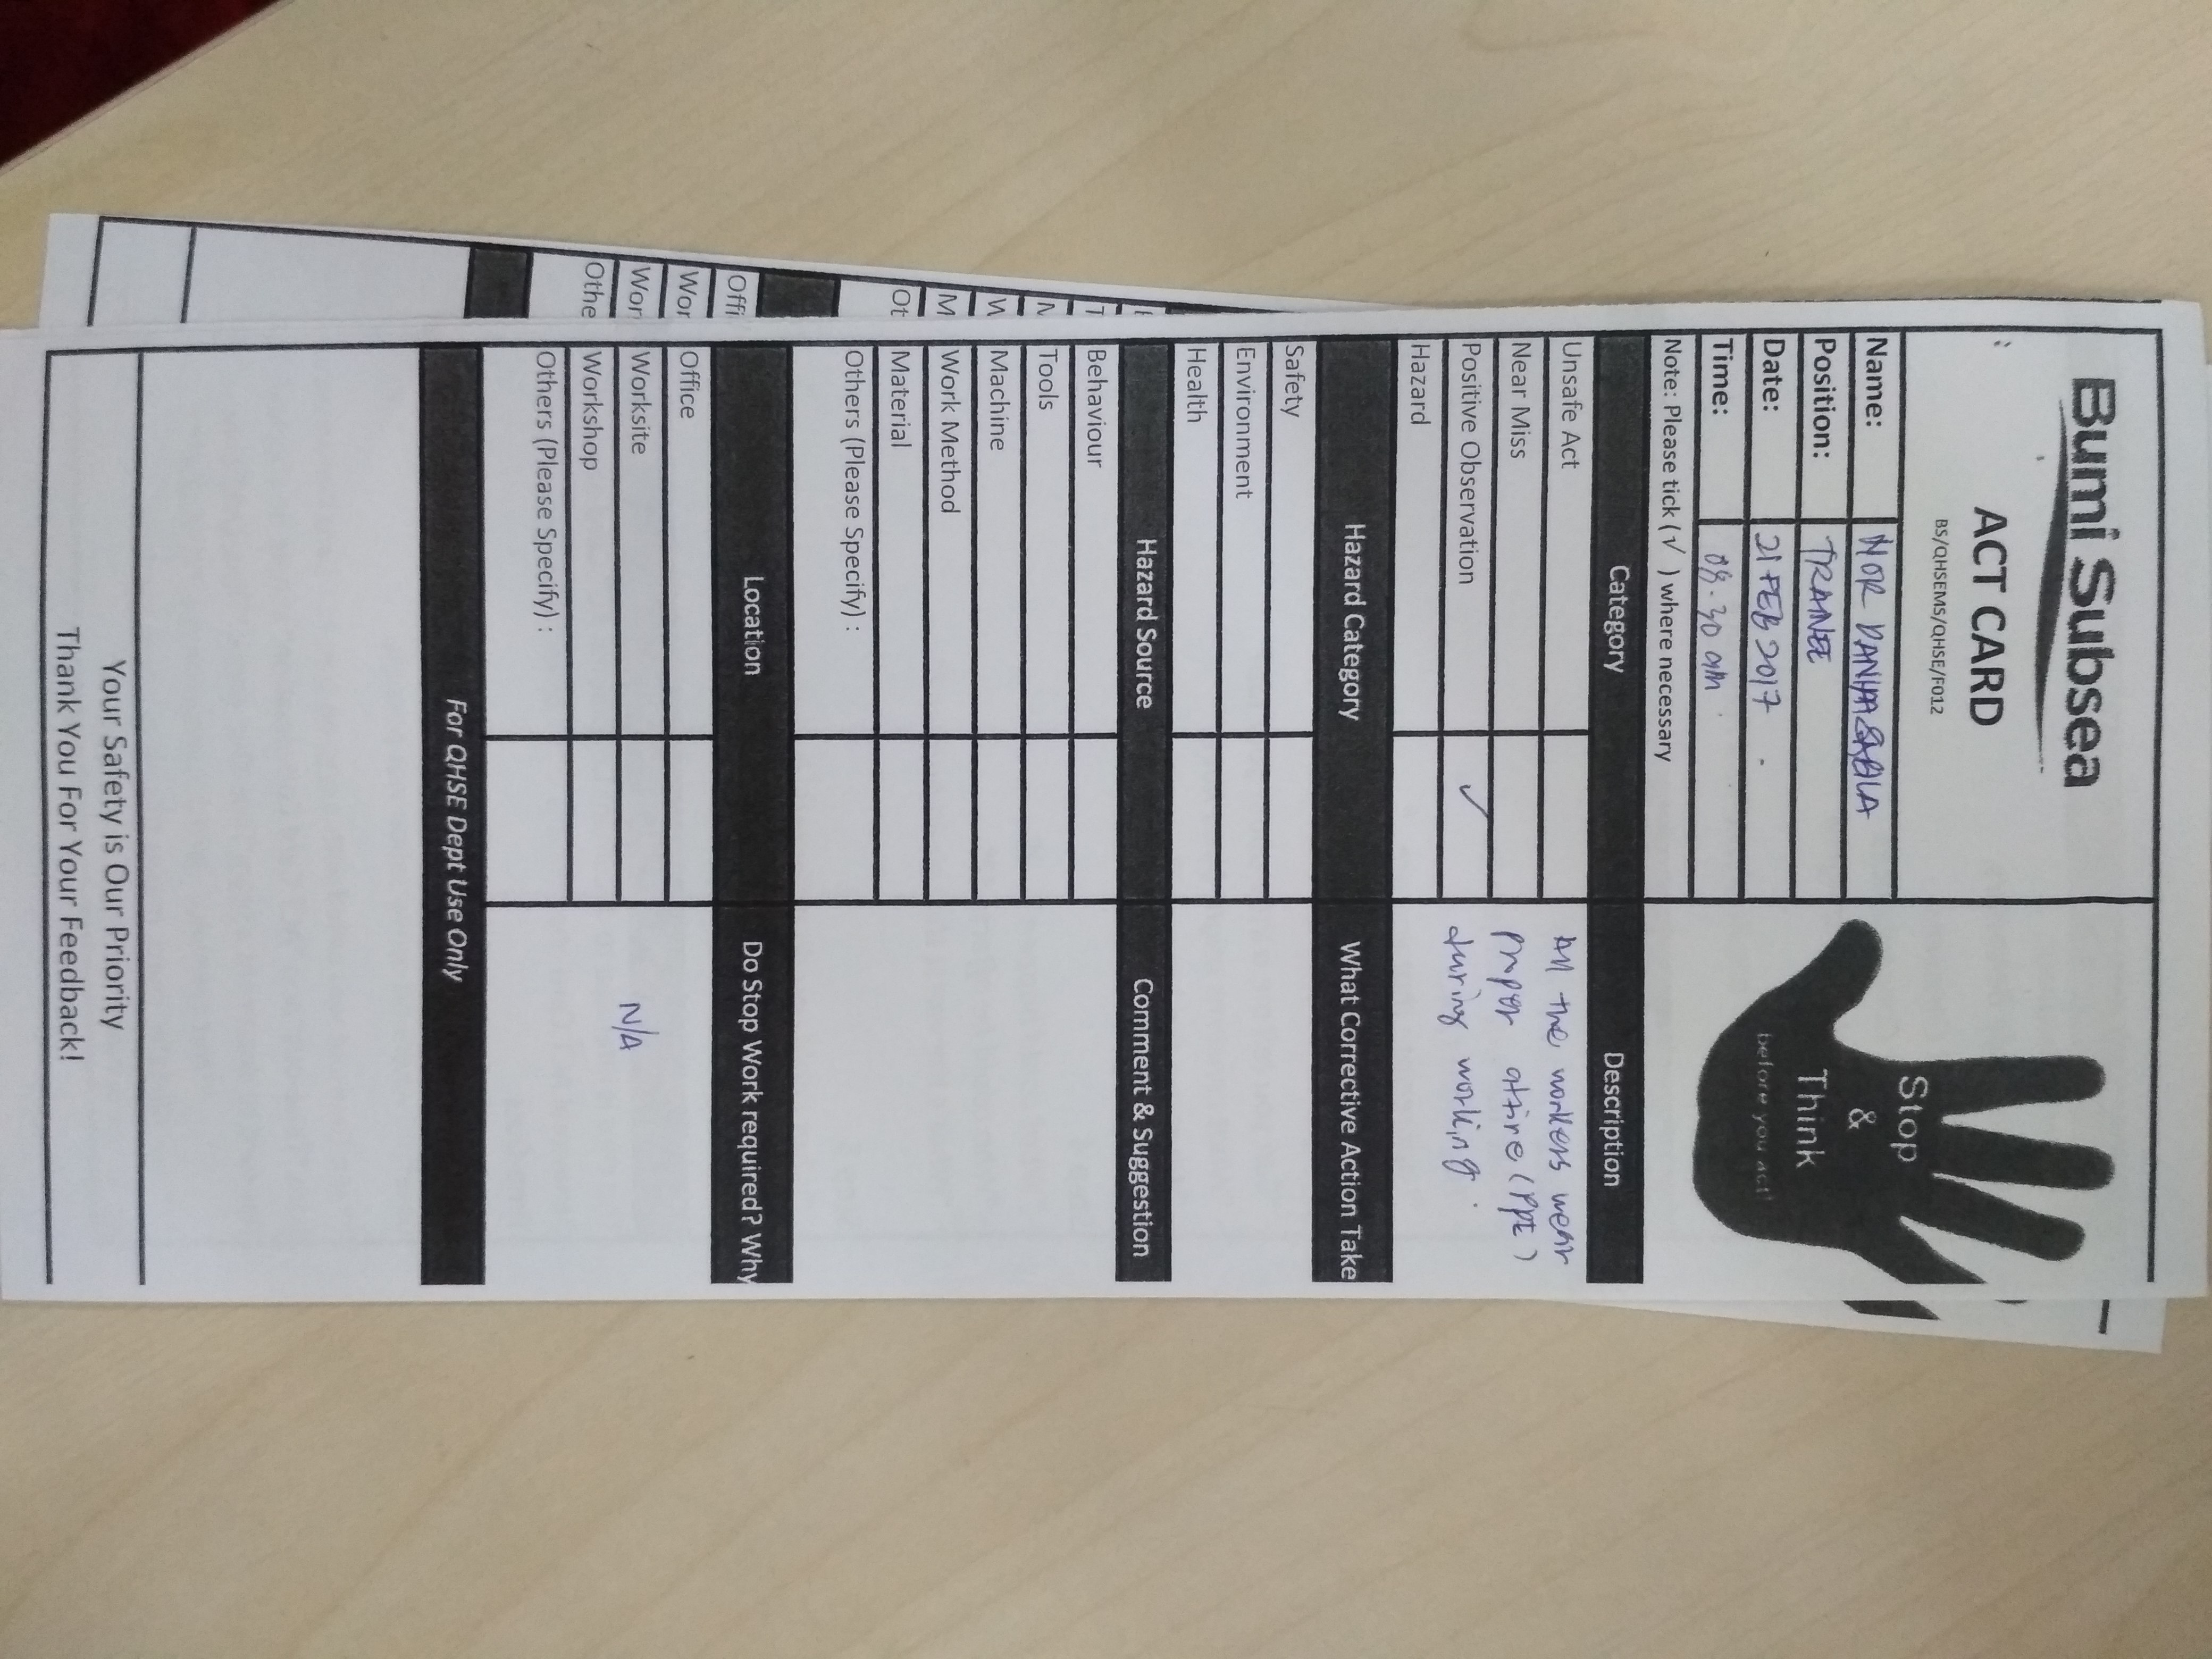 Bumi Subsea
ACT CARD
BS/QHSEMS/QHSE/F012
Stop
&
Think
before you act!
Name: NOR
Position: TRAINEE
Date: 21 FEB 2017
Time: 08.30 am
Note: Please tick ( √ ) where necessary
Category Description
Unsafe Act
Near Miss
Positive Observation ✓
Hazard
All the workers wear
proper attire (PPE)
during working.
Hazard Category What Corrective Action Take
Safety
Environment
Health
Hazard Source Comment & Suggestion
Behaviour
Tools
Machine
Work Method
Material
Others (Please Specify) :
Location Do Stop Work required? Why
Office
Worksite
Workshop
Others (Please Specify) :
N/A
For QHSE Dept Use Only
Your Safety is Our Priority
Thank You For Your Feedback!
T
M
Ot
Offi
Wor
Wor
Othe